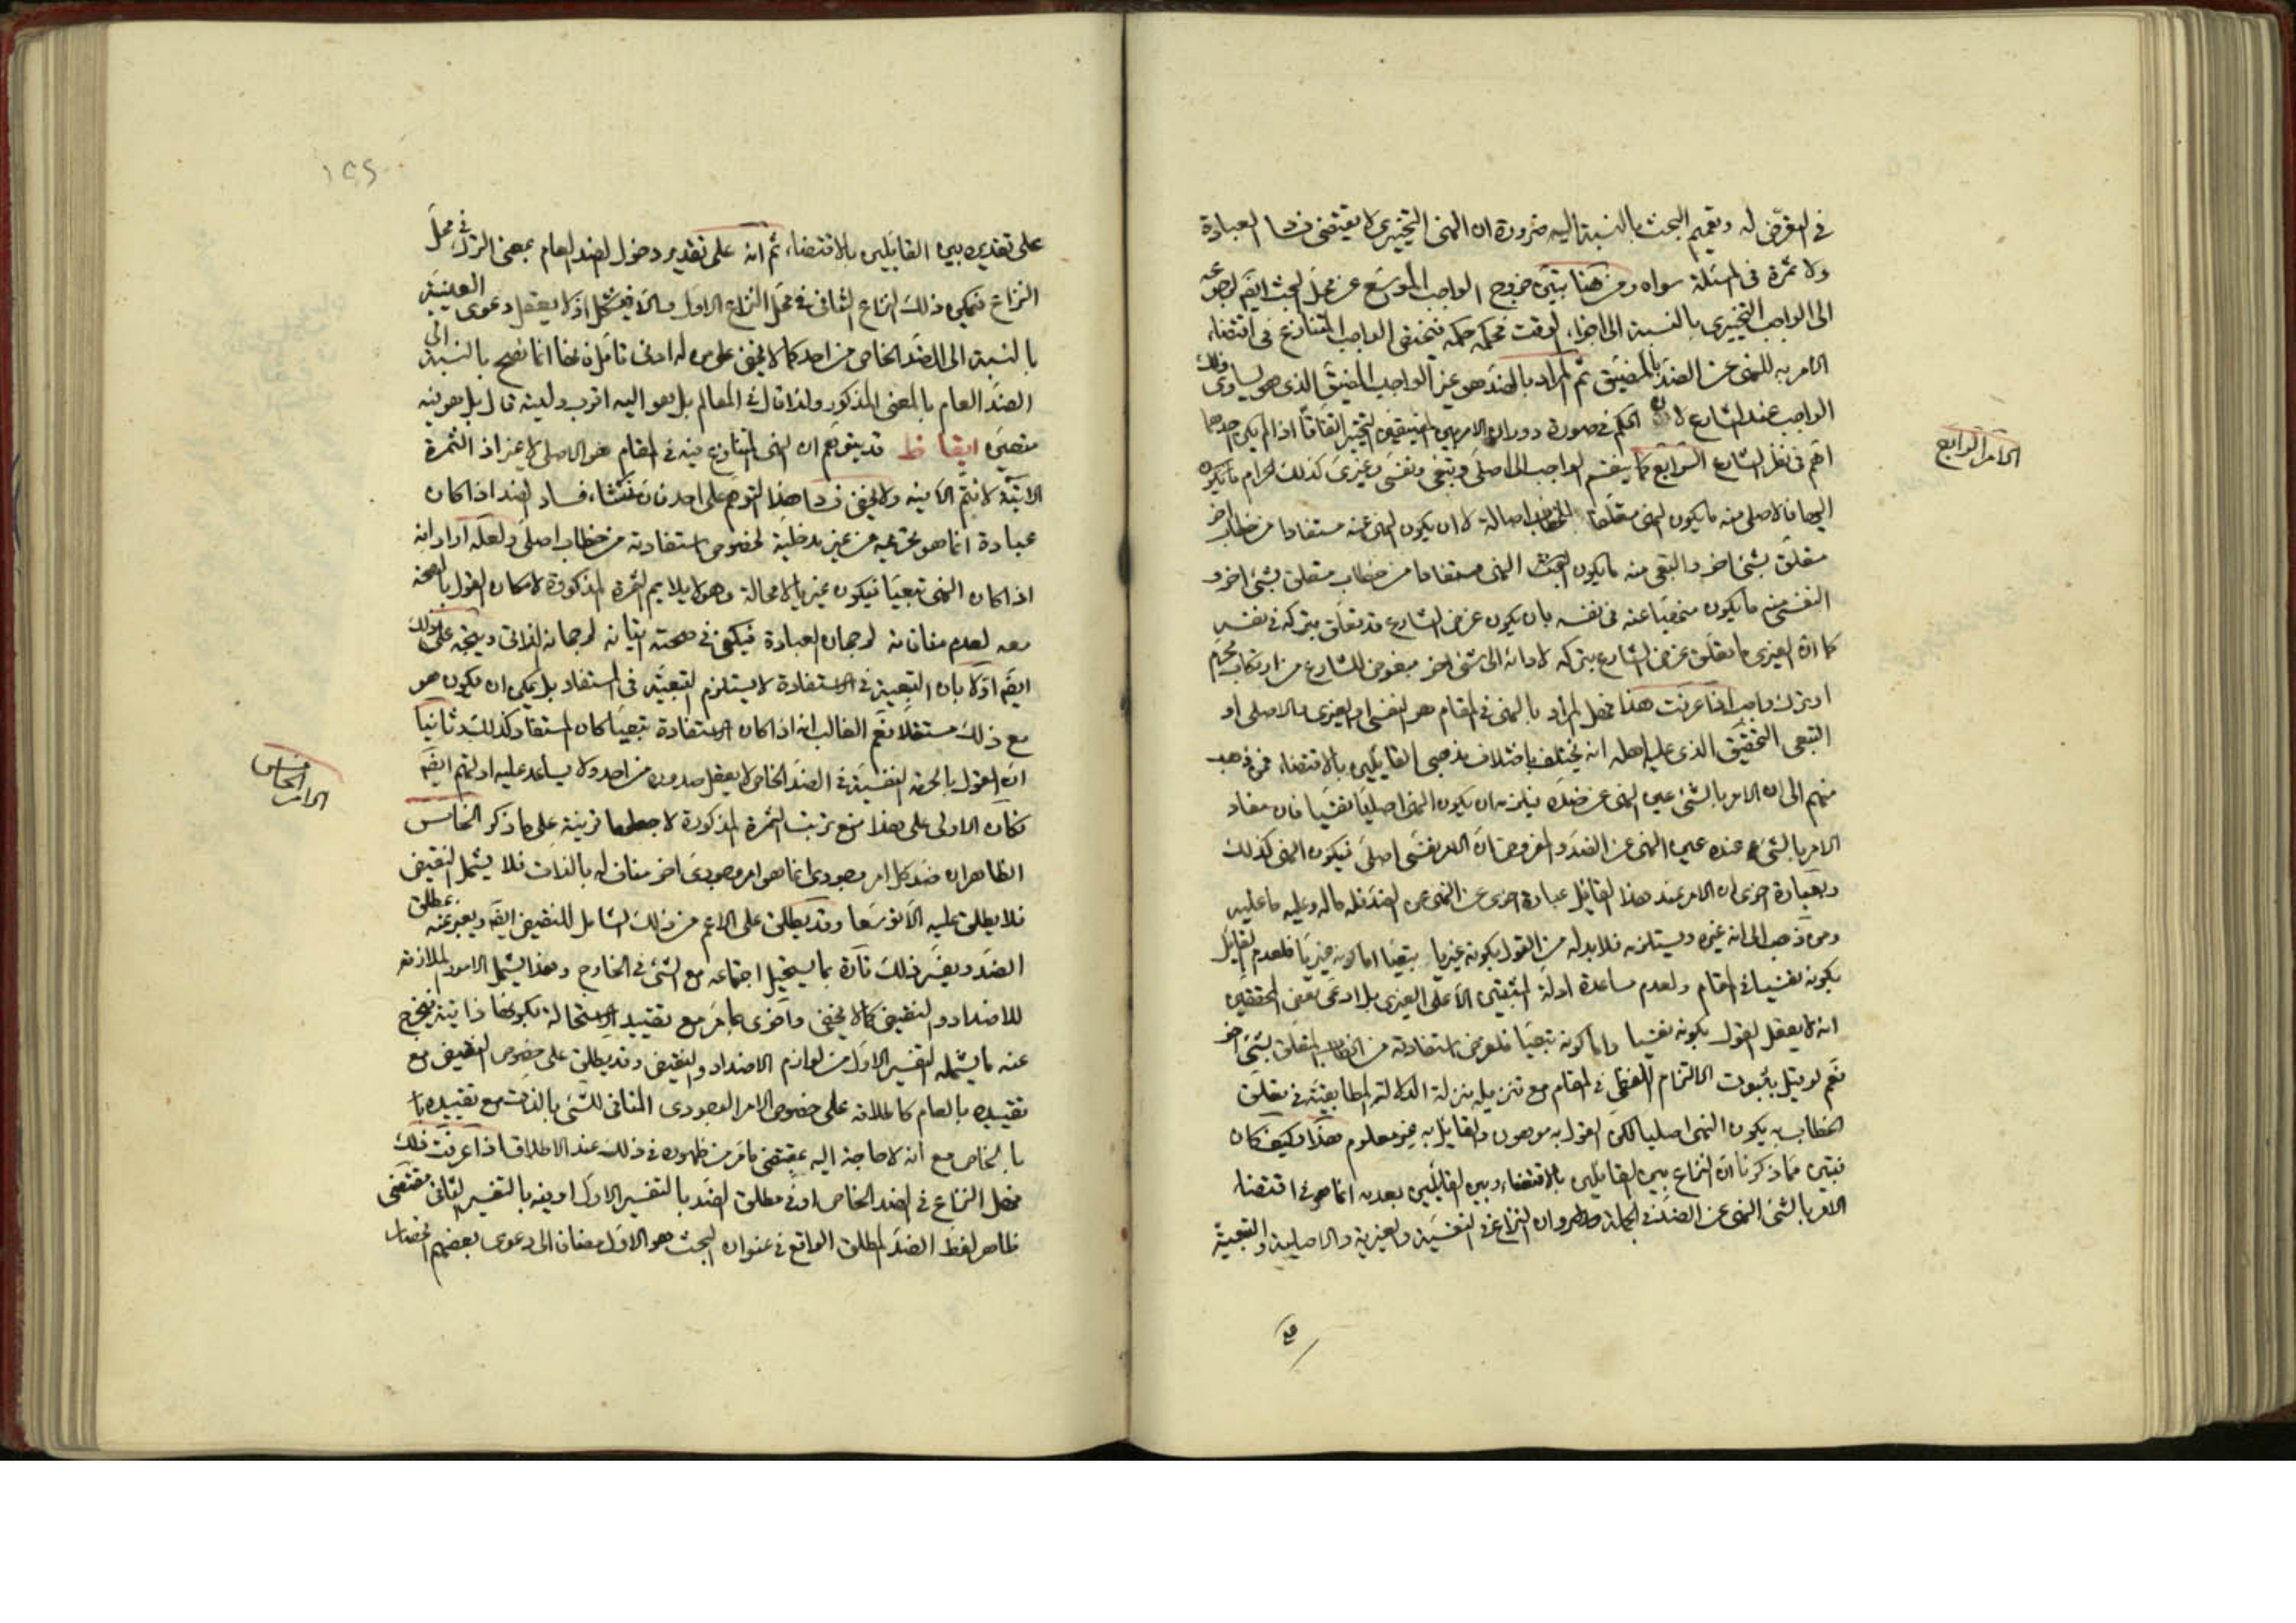 في التعرّض له وتعميم البحث بالنسبة اليه ضرورة ان النهي التخييري لا يقتضي فساد العبادة
ولا ثمرة في المسئلة سواه ومن هنا تبيّن خروج الواجب الموسّع عن محلّ البحث ايضا لرجوعه
الى الواجب التخييري بالنسبة الى اجزاء الوقت فحكمه حكمه فيختص الواجب المتنازع في اقتضاء
الامر به للنهي عن الضدّ بالمضيّق ثم المراد بالضدّ هو غير الواجب المضيّق الذي هو يساوي ذلك
الواجب عند الشارع لانّ الحكم في صورة دوران الامر بين المضيقين التخيير اتفاقاً اذا لم يكن احدهما
اهمّ في نظر الشارع الرابع كما ينقسم الواجب الى اصلي وتبعي ونفسي وغيري كذلك الحرام ما يكون
اليها فالاصلي منه ما يكون النهي متعلّقا بالخطاب اصالة لا ان يكون النهي عنه مستفادا من خطاب اخر
متعلّق بشئ اخر والتبعي منه ما يكون النهي مستفادا من خطاب متعلق بشئ اخر و
النفسي منه ما يكون مبغوضا عنه في نفسه بان يكون غرض الشارع قد تعلّق بتركه في نفسه
كما انّ الغيري ما تعلّق غرض الشارع بتركه لادائه الى شئ اخر مبغوض للشارع من ارتكاب محرّم
او ترك واجب اذا عرفت هذا فهل المراد بالنهي في المقام هو النفسي او الغيري والاصلي او
التبعي التحقيق الذي عليه اهله انه يختلف باختلاف مذهبي القائلين بالاقتضاء فمن ذهب
منهم الى ان الامر بالشئ عين النهي عن ضدّه يلزمه ان يكون النهي اصليا نفسيا فان مفاد
الامر بالشئ عنده عين النهي عن الضدّ والمفروض انّ الامر نفسي اصلي فيكون النهي كذلك
وبعبارة اخرى ان الامر عند هذا القائل عبارة اخرى عن النهي عن الضدّ فله ماله وعليه ما عليه
ومن ذهب الى انه غيره ويستلزمه فلا بدله من القول بكونه غيريا تبعيّا اما كونه غيريّا فلعدم القائل
بكونه نفسيا في المقام ولعدم مساعدة ادلة المثبتين الاّ على الغيري بل ادعى بعض المحققين
انه لا يعقل القول بكونه نفسيا وامّا كونه تبعيّا فلفرض استفادته من الخطاب المتعلّق بشئ اخر
نعم لو قيل بثبوت الالتزام اللفظي في المقام مع تنزيله منزلة الدلالة المطابقيّة في تعلّق
الخطاب به يكون النهي اصليا لكنّ القول به موهون والقايل به غير معلوم هذا وكيف كان
فتبيّن مما ذكرنا انّ النزاع بين القائلين بالاقتضاء وبين القائلين بعدمه انما هو في اقتضاء
الامر بالشئ النهي عن الضدّ في الجملة وظهر ان النزاع في النفسيّة والغيرية والاصلية والتبعيّة
الامر الرابع
١٥٢
على تقديره بين القايلين بالاقتضاء ثم انه على تقدير دخول الضد العام بمعنى الترك في محلّ
النزاع فيمكن ذلك النزاع الثاني في محلّ النزاع الاول والاّ فيشكل اذ لا يعقل دعوى العينيّة
بالنسبة الى الضدّ الخاص من احد كما لا يخفى على من له ادنى تامّل فانها انما تصح بالنسبة الى
الضدّ العام بالمعنى المذكور ولذا قال في المعالم بل هو اليه اقرب وليته قال بل هو فيه
متعيّن ايقاظ قد يتوهّم ان النهي المتنازع فيه في المقام هو الاصلي لا غير اذ الثمرة
الاتية لا تتمّ الاّ فيه ولا يخفى فساد هذا التوهّم على احد فان منشاء فساد الضد اذا كان
عبادة انما هو تحريمه من غير مدخليّة لخصوص استفادته من خطاب اصلي ولعله اراد انه
اذا كان النهي تبعيّا فيكون غيريا لا محالة وهو لا يلايم الثمرة المذكورة لامكان القول بالصحّة
معه لعدم منافاته لرجحان العبادة فيكفي في صحته اتيانه لرجحانه الذاتي ويتجه على ذلك
ايضا اوّلا بان التبعيّة في الاستفادة لا يستلزم التبعيّة في المستفاد بل يمكن ان يكون هو
مع ذلك مستقلا نعم الغالب انه اذا كان الاستفادة تبعيّا كان المستفاد كذلك وثانيا
انّ القول بالحرمة النفسيّة في الضدّ الخاص لا يعقل صدوره من احد ولا يساعد عليه ادلتهم ايضا
فكان الاولى على هذا منع ترتب الثمرة المذكورة لا جعلها قرينة على ما ذكر الخامس
الظاهر ان ضدّ كل امر وجودي انما هو امر وجودي اخر مناف له بالذات فلا يشمل النقيض
فلا يطلق عليه الاّ توسّعا وقد يطلق على الاعم من ذلك الشامل للنقيض ايضا ويعبر عنه بمطلق
الضدّ ويفسّر ذلك تارة بما يستحيل اجتماعه مع الشئ في الخارج وهذا يشمل الامور الملازمة
للاضداد والنقيض كما لا يخفى واخرى بما مرّ مع تقييد الاستحالة بكونها ذاتية فيخرج
عنه ما يشمله التفسير الاوّل من لوازم الاضداد والنقيض وقد يطلق على خصوص النقيض مع
تقييده بالعام كاطلاقه على خصوص الامر الوجودي المنافي للشئ بالذات مع تقييده
بالخاص مع انه لا حاجة اليه بمقتضى ما مرّ من ظهوره في ذلك عند الاطلاق اذا عرفت ذلك
فهل النزاع في الضد الخاص او في مطلق الضدّ بالتفسير الاول او فيه بالتفسير الثاني مقتضى
ظاهر لفظ الضدّ المطلق الواقع في عنوان البحث هو الاول مضافا الى دعوى بعضهم اختصاص
الامر الخامس